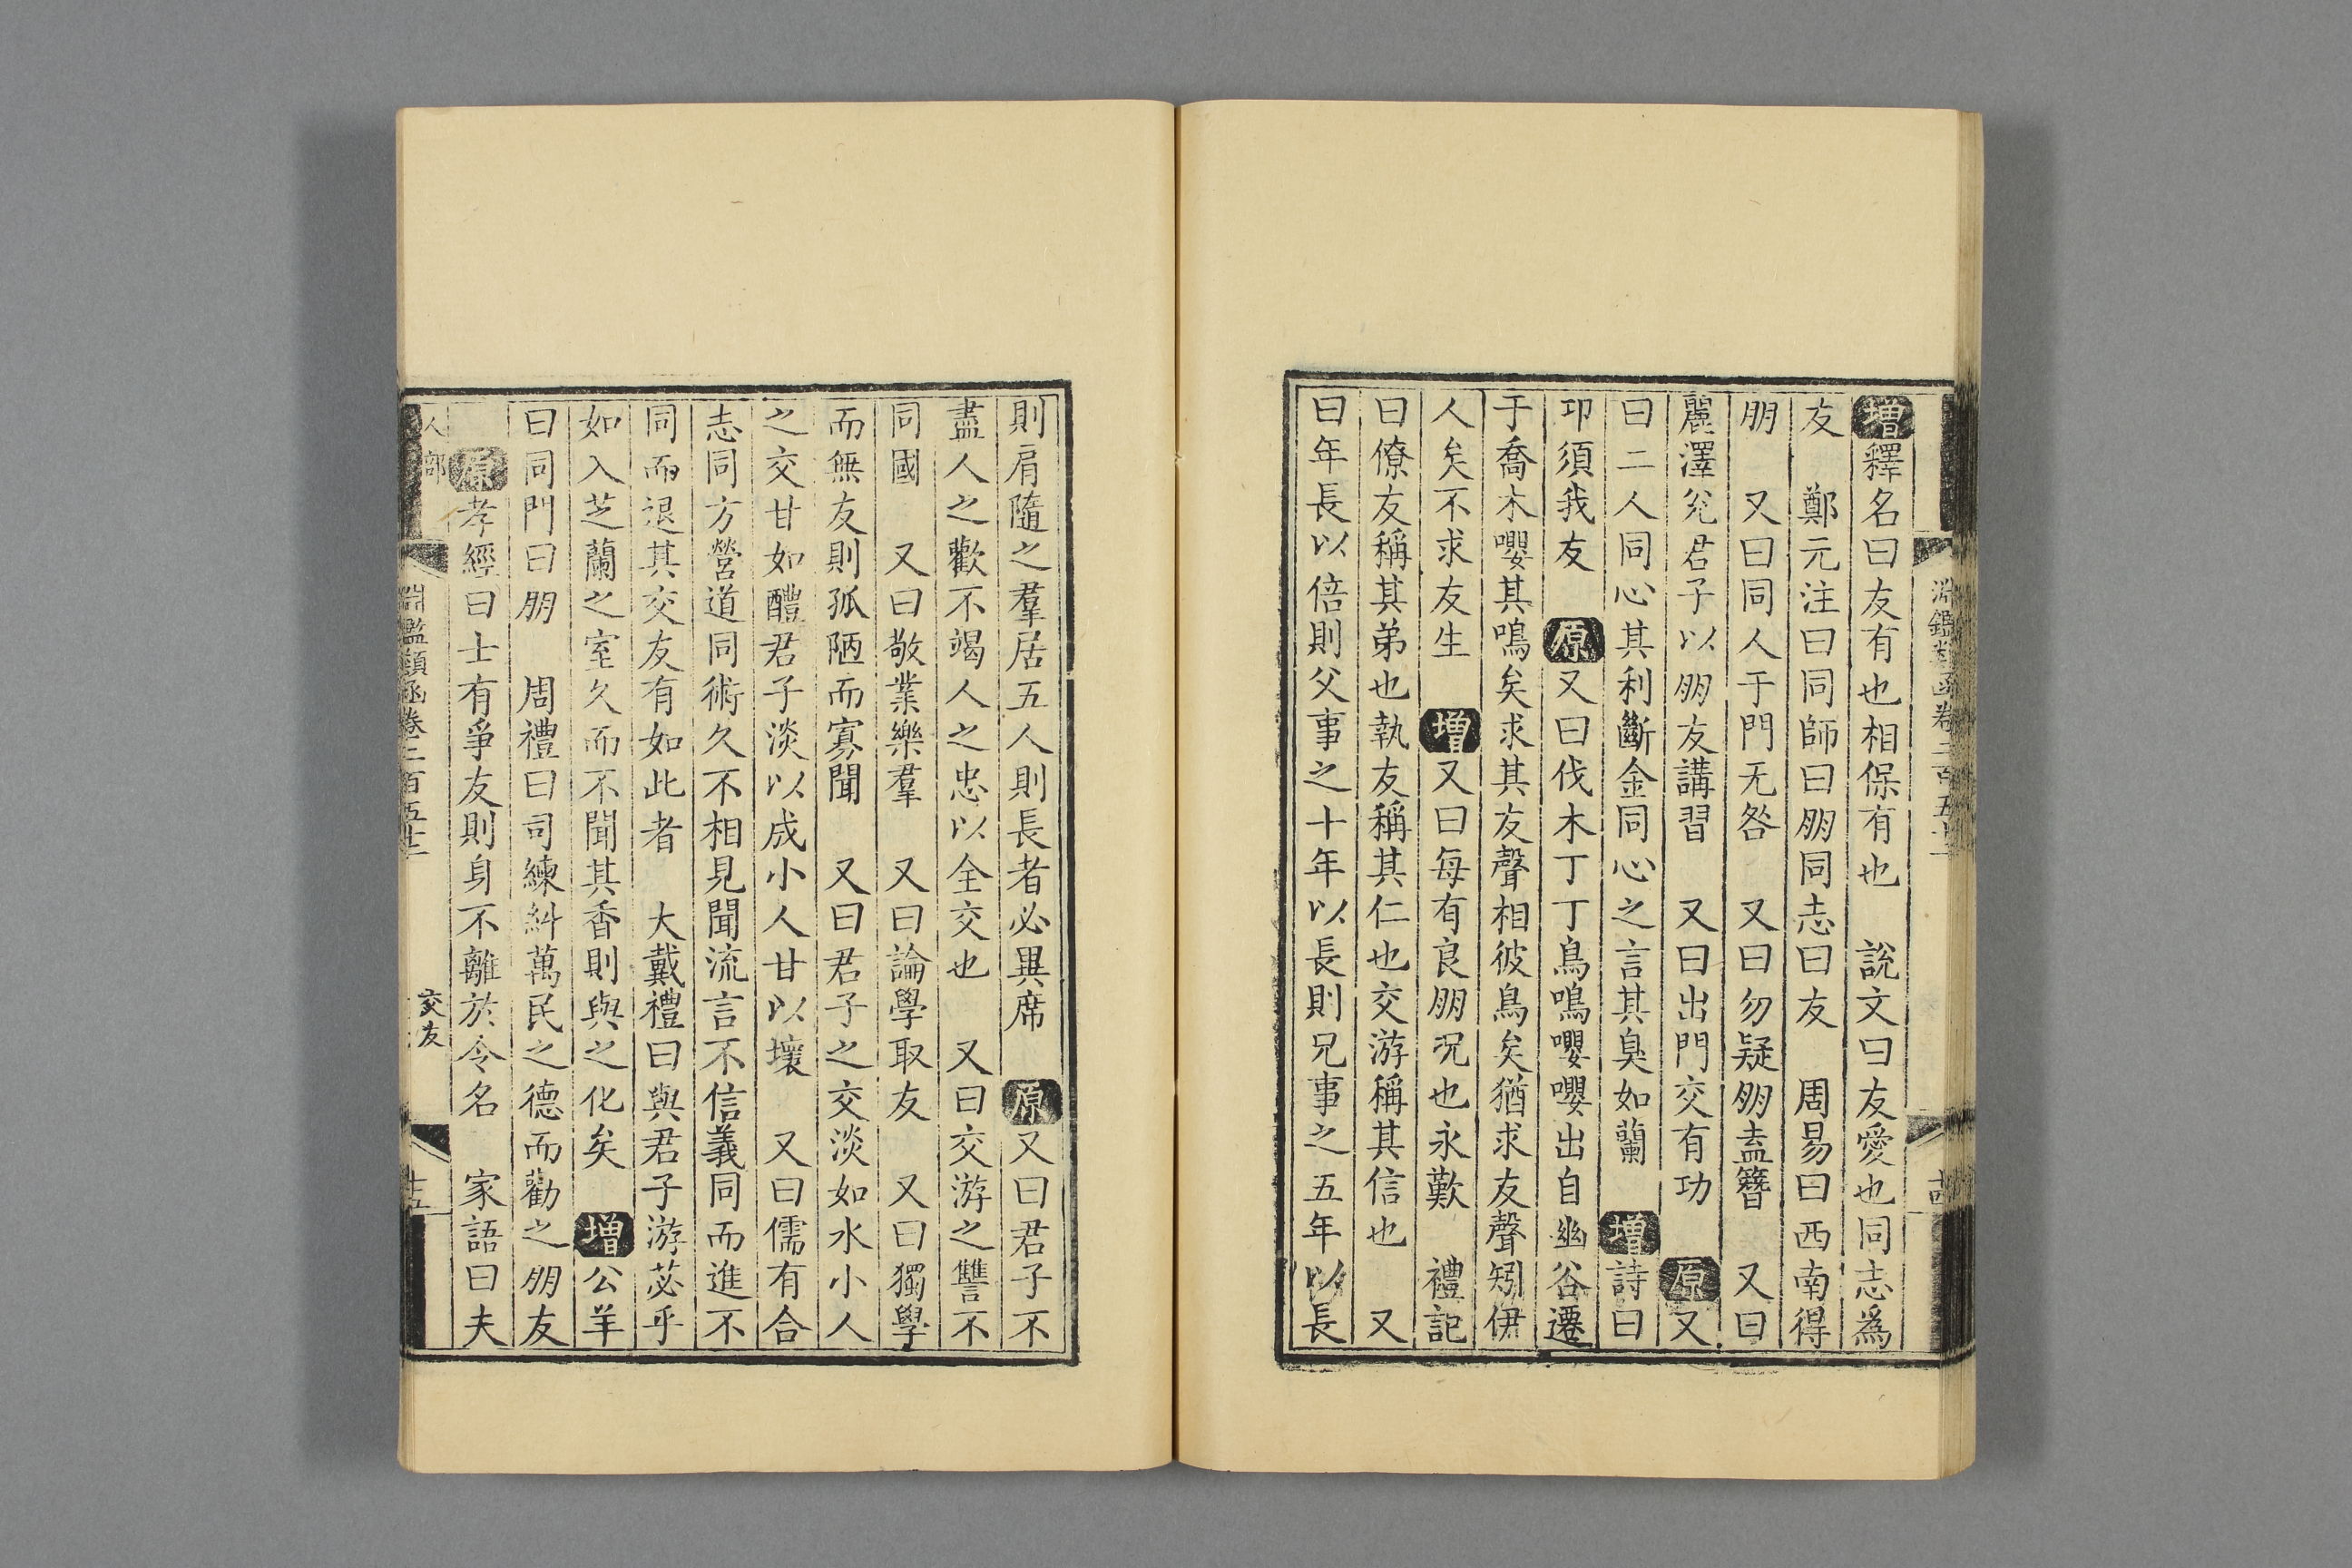 增釋名曰友有也相保有也 說文曰友愛也同志爲
友 鄭元注曰同師曰朋同志曰友 周易曰西南得
朋 又曰同人于門无咎 又曰勿疑朋盍簪 又曰
麗澤兌君子以朋友講習 又曰出門交有功 原又
曰二人同心其利斷金同心之言其臭如蘭 增詩曰
卬須我友 原又曰伐木丁丁鳥鳴嚶嚶出自幽谷遷
于喬木嚶其鳴矣求其友聲相彼鳥矣猶求友聲矧伊
人矣不求友生 增又曰每有良朋况也永歎 禮記
曰僚友稱其弟也執友稱其仁也交游稱其信也 又
曰年長以倍則父事之十年以長則兄事之五年以長
則肩隨之羣居五人則長者必異席 原又曰君子不
盡人之歡不竭人之忠以全交也 又曰交游之讐不
同國 又曰敬業樂羣 又曰論學取友 又曰獨學
而無友則孤陋而寡聞 又曰君子之交淡如水小人
之交甘如醴君子淡以成小人甘以壞 又曰儒有合
志同方營道同術久不相見聞流言不信義同而進不
同而退其交友有如此者 大戴禮曰與君子游苾乎
如入芝蘭之室久而不聞其香則與之化矣 增公羊
曰同門曰朋 周禮曰司練糾萬民之德而勸之朋友
原孝經曰士有爭友則身不離於令名 家語曰夫
人部 淵鑑類函卷二百五十 交友 十五